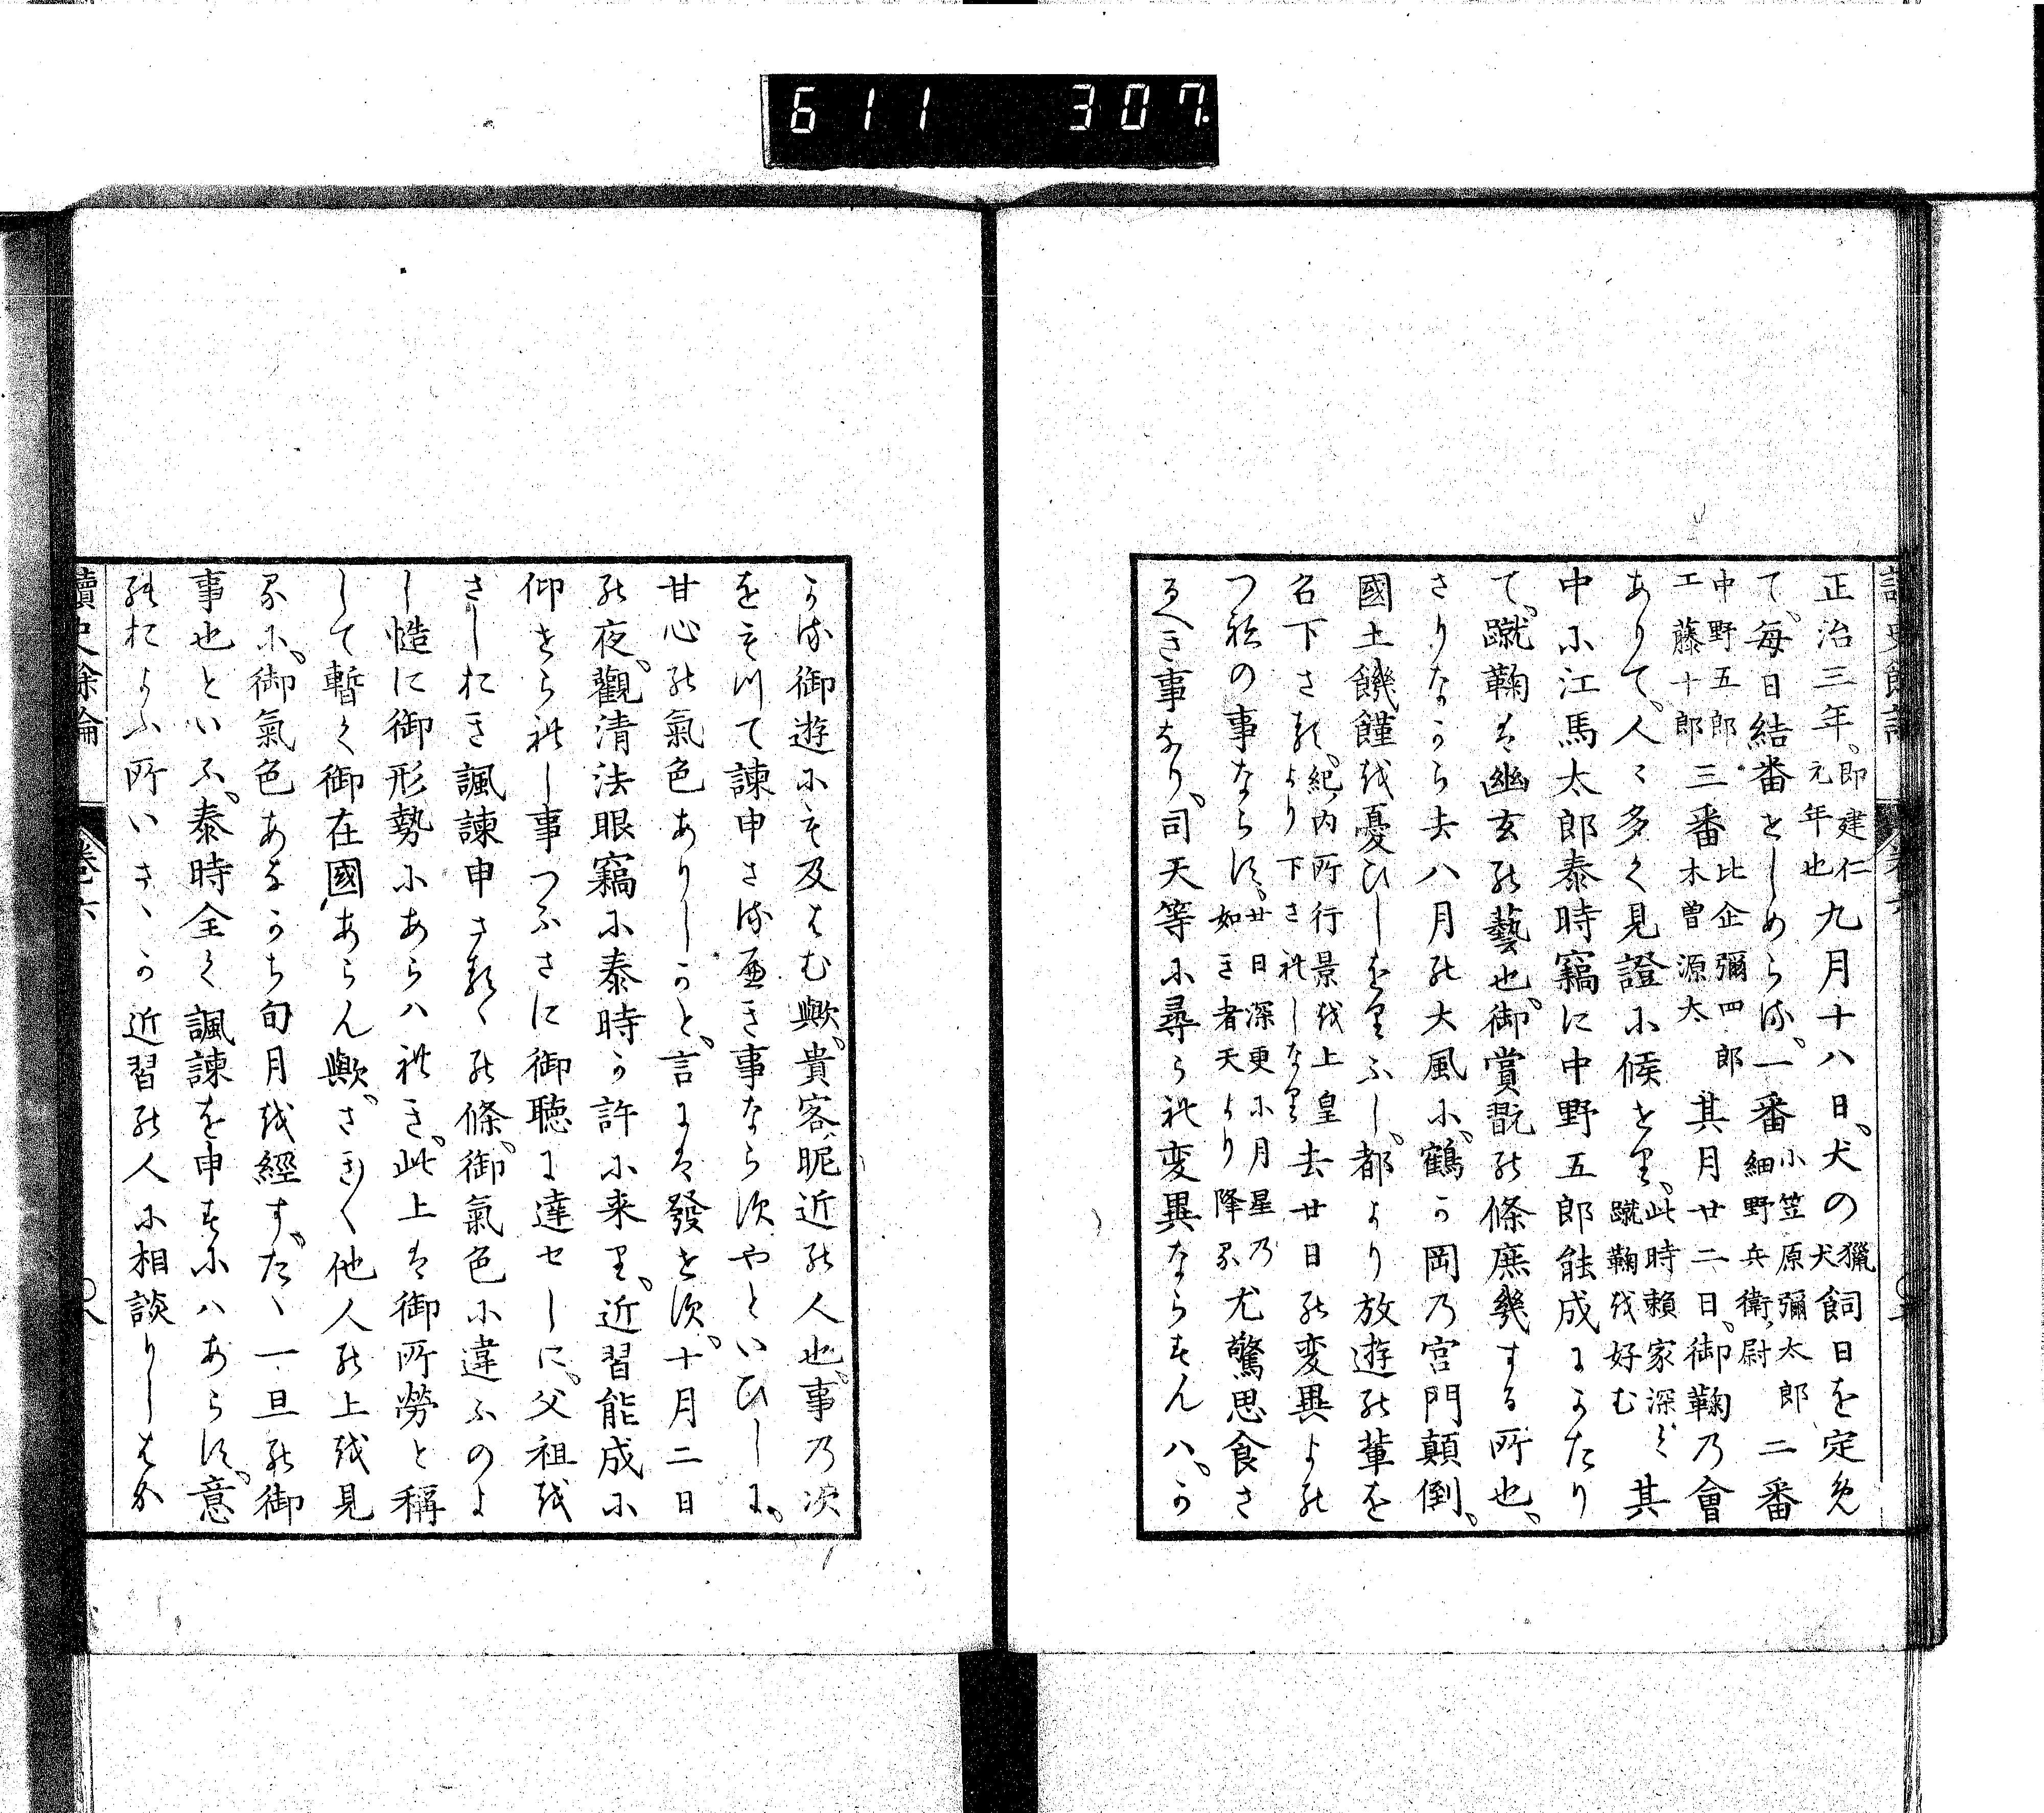 611 307
正治三年、即建仁元年也九月十八日、犬の獵犬飼日を定免
て、毎日結番としめら流、一番小笠原彌太郎細野兵衛尉二番
中野五郎工藤十郎三番比企彌四郎木曽源太其月廿二日、御鞠乃會
ありて、人々多く見證小候せり、此時頼家深ク蹴鞠越好む其
中小江馬太郎泰時竊に中野五郎能成よかたり
て、蹴鞠は幽玄能藝也、御賞翫能條庶幾する所也、
さりなから去八月能大風小、鶴か岡乃宮門顛倒、
國土饑饉越憂ひしをりふし、都より放遊能輩を
召下さる、紀内所行景越上皇より下されしなり去廿日能変異よ能
つ祢の事ならす、廿日深更小月星乃如き者天より降る尤驚思食さ
るへき事なり、司天等小尋られ変異ならすんハ、か
かる御遊小も及はむ歟、貴客昵近能人也、事乃次
をもつて諫申さるへき事ならすやといひしよ、
甘心能氣色ありしかと、言よは發せす、十月二日
能夜、觀清法眼竊小泰時か許小来り、近習能成小
仰せられし事つふさに御聴よ達せしに、父祖越
さしおき諷諫申さるゝ能條、御氣色小違ふのよ
し慥に御形勢小あらハれき、此上は御所勞と稱
して暫く御在國あらん歟、さきく他人能上越見
る小、御氣色あなかち旬月越經す、たゝ一旦能御
事也といふ、泰時全く諷諫を申す小ハあらす、意
能およふ所いさゝか近習能人小相談りしはか
讀史餘論 巻六